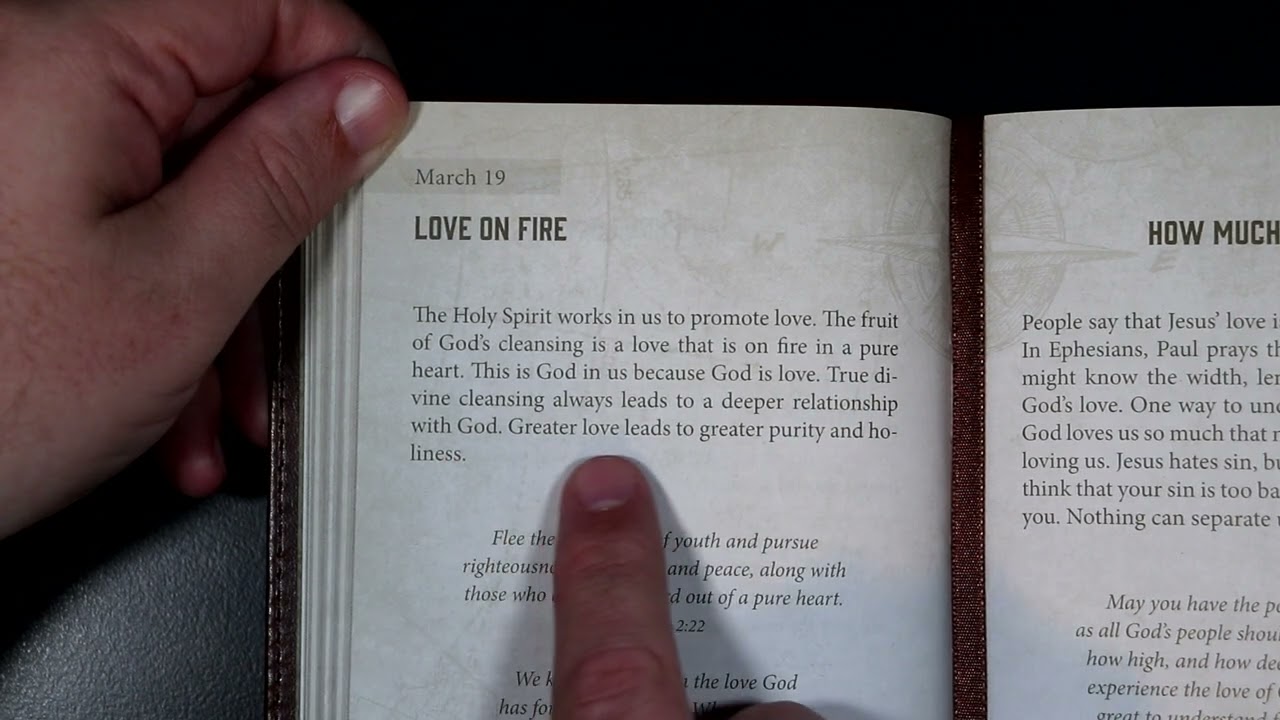 March 19
LOVE ON FIRE
The Holy Spirit works in us to promote love. The fruit
of God's cleansing is a love that is on fire in a pure
heart. This is God in us because God is love. True di-
vine cleansing always leads to a deeper relationship
with God. Greater love leads to greater purity and ho-
liness.
Flee the of youth and pursue
and peace, along with
those who out of a pure heart.
2:22
We the love God
has
HOW MUCH
People say that Jesus' love
In Ephesians, Paul prays
might know the width,
God's love. One way to
God loves us so much that
loving us. Jesus hates sin,
think that your sin is too
you. Nothing can separate
May you have the
as all God's people
how high, and how
experience the love of
great to